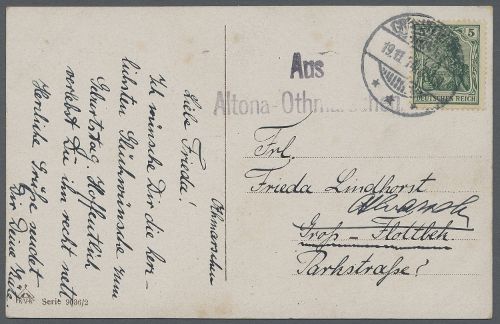 Othmarschen
Liebe Frieda!
Ich wünsche Dir die herz-
lichsten Glückwünsche zum
Geburtstag. Hoffentlich
verlebst Du ihn recht nett
Herzliche Grüße sendet
Dir Deine
Serie 9036/2
Aus
Altona-Othmarschen
5
DEUTSCHES REICH
Frl.
Frieda Lindhorst
Groß-Flottbek
Parkstraße?